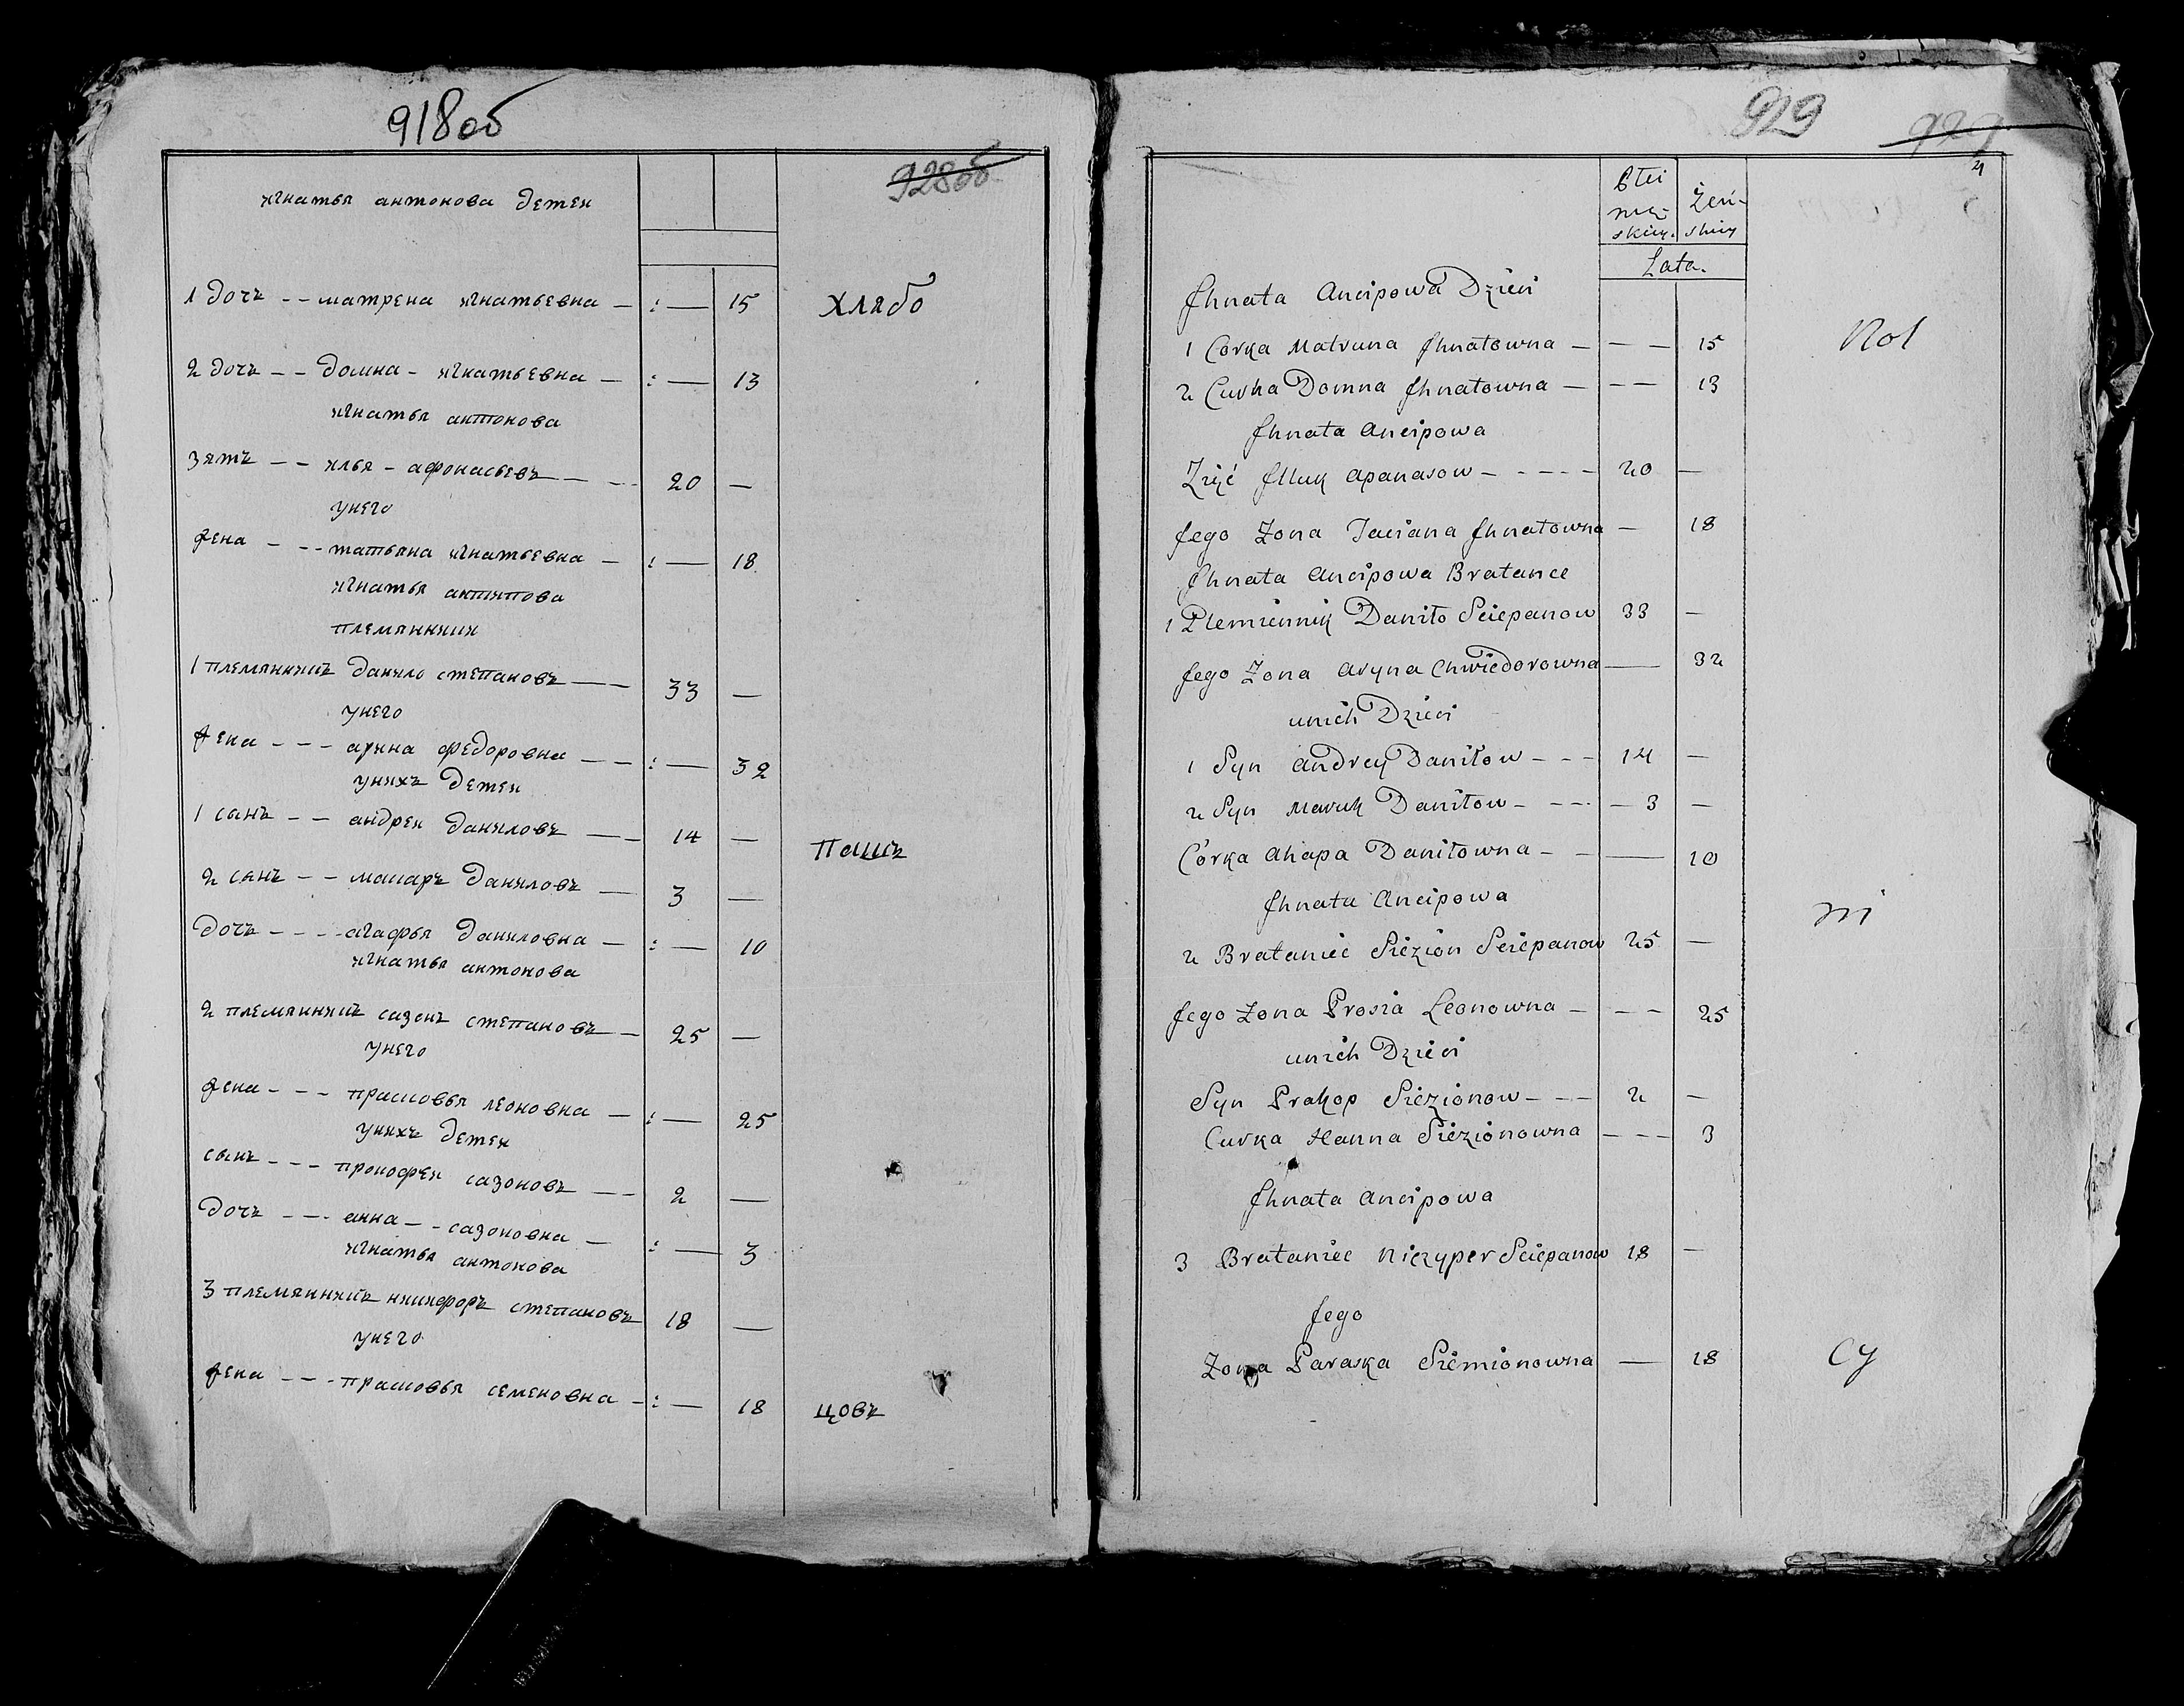 918об
928об
игнатья антонова детеи
1 дочь -- матрена игнатьевна — : — 15 хлѣбо
2 дочь -- домна - игнатьевна — : — 13
игнатья антонова
зять -- илья - афонасьевъ — 20 —
унего
жена --- татьяна игнатьевна — : — 18
игнатья антипова
племянники
1 племянникъ данило степановъ — 33 —
унего
жена --- арина федоровна -- : — 32
унихъ детеи
1 сынъ -- андреи даниловъ — 14 — пашъ
2 сынъ -- макаръ даниловъ — 3 —
дочь ---- агафья даниловна — : — 10
игнатья антонова
2 племянникъ сазонъ степановъ — 25 —
унего
жена --- прасковья леоновна — : — 25
унихъ детеи
сынъ --- прокофеи сазоновъ -- 2 —
дочь --- анна -- сазоновна — : — 3
игнатья антонова
3 племянникъ никифоръ степановъ 18 —
унего
жена --- прасковья семеновна - : — 18 цовъ
929
929
4
Płci
mę-
skiey.
Żeń-
skiey
Lata.
Jhnata Ancipowa Dzieci
1 Corka Matruna Jhnatowna — — — 15 Rol
2 Curka Domna Jhnatowna — — — 13
Jhnata Ancipowa
Zięć Jlluk Apanasow - - - - - 20 —
Jego Zona Taciana Jhnatowna — 18
Jhnata Ancipowa Bratance
1 Plemiennik Daniło Sciepanow 33 —
Jego Zona Aryna Chwiedorowna — 32
unich Dzieci
1 Syn Andrey Daniłow - - - 14 —
2 Syn Maruk Daniłow - - - - — 3 —
Córka Ahapa Daniłowna - - — 10
Jhnata Ancipowa ni
2 Brataniec Siezion Sciepanow 25 —
Jego Zona Prosia Leonowna — - - - 25
unich Dzieci
Syn Prakop Siezionow - - - 2 —
Curka Hanna Siezionowna - - - 3
Jhnata Ancipowa
3 Brataniec Niczyper Sciepanow 18 —
Jego
Zona Paraska Siemionowna — 18 cy